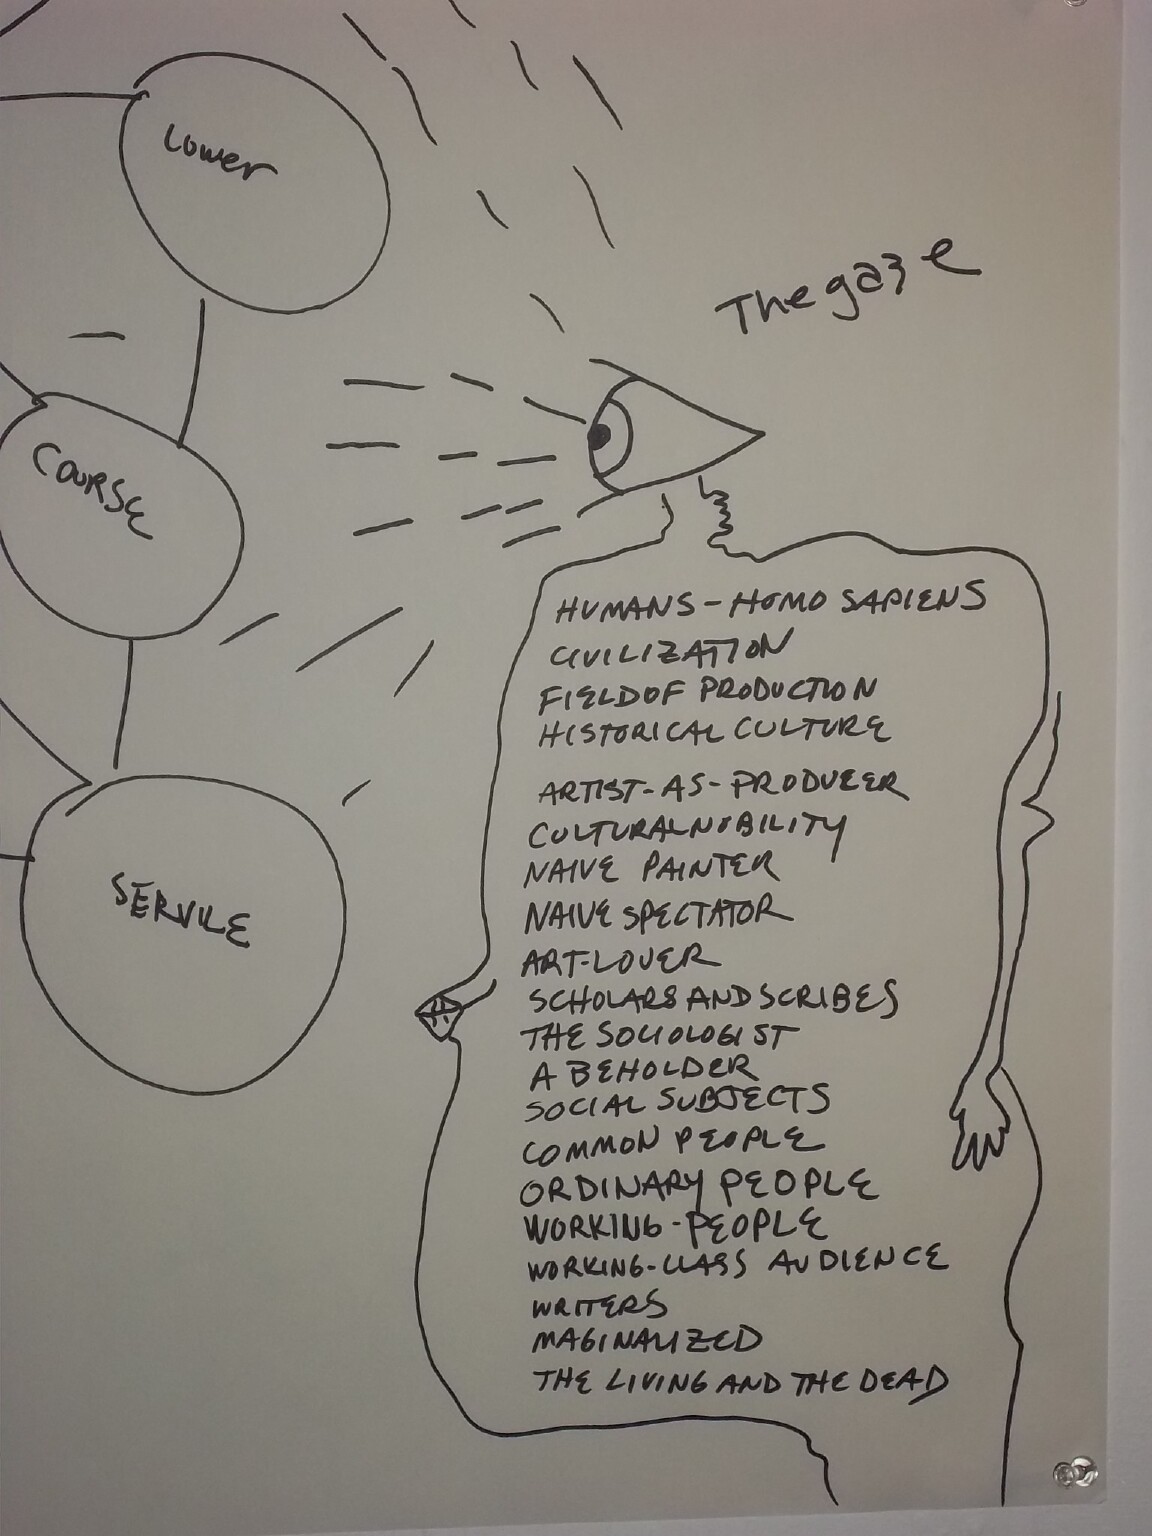 Lower
The gaze
COURSE
HUMANS-HOMO SAPIENS
CIVILIZATION
FIELD OF PRODUCTION
HISTORICAL CULTURE
ARTIST-AS-PRODUCER
CULTURAL NOBILITY
NAIVE PAINTER
SERVILE
NAIVE SPECTATOR
ART-LOVER
SCHOLARS AND SCRIBES
THE SOCIOLOGIST
A BEHOLDER
SOCIAL SUBJECTS
COMMON PEOPLE
ORDINARY PEOPLE
WORKING-PEOPLE
WORKING-CLASS AUDIENCE
WRITERS
MAGINALIZED
THE LIVING AND THE DEAD